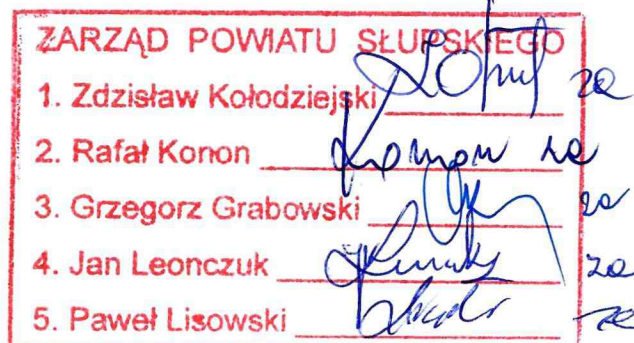 ZARZĄD POWIATU SŁUPSKIEGO
1. Zdzisław Kołodziejski za
2. Rafał Konon Konon za
3. Grzegorz Grabowski za
4. Jan Leonczuk za
5. Paweł Lisowski za